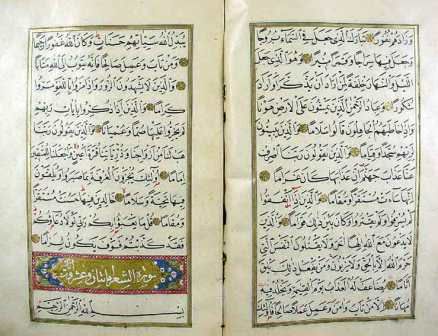 وزادهم نفورا تبارك الذي جعل في السماء بروجا
وجعل فيها سراجا وقمرا منيرا وهو الذي جعل
الليل والنهار خلفة لمن اراد ان يذكر او اراد
شكورا وعباد الرحمن الذين يمشون على الارض هونا
واذا خاطبهم الجاهلون قالوا سلاما والذين يبيتون
لربهم سجدا وقياما والذين يقولون ربنا اصرف
عنا عذاب جهنم ان عذابها كان غراما
انها ساءت مستقرا ومقاما والذين اذا انفقوا
لم يسرفوا ولم يقتروا وكان بين ذلك قواما والذين
لا يدعون مع الله الها اخر ولا يقتلون النفس التي
حرم الله الا بالحق ولا يزنون ومن يفعل ذلك يلق
اثاما يضاعف له العذاب يوم القيمة ويخلد فيه
مهانا الا من تاب وامن وعمل عملا صالحا فاولئك
يبدل الله سيئاتهم حسنات وكان الله غفورا رحيما
ومن تاب وعمل صالحا فانه يتوب الى الله متابا
والذين لا يشهدون الزور واذا مروا باللغو مروا
كراما والذين اذا ذكروا بايات ربهم
لم يخروا عليها صما وعميانا والذين يقولون ربنا
هب لنا من ازواجنا وذرياتنا قرة اعين واجعلنا للمتقين
اماما اولئك يجزون الغرفة بما صبروا ويلقون
فيها تحية وسلاما خالدين فيها حسنت مستقرا
ومقاما قل ما يعبؤا بكم ربي لولا دعاؤكم
فقد كذبتم فسوف يكون لزاما
سورة الشعراء مائتان وعشرون
بسم الله الرحمن الرحيم